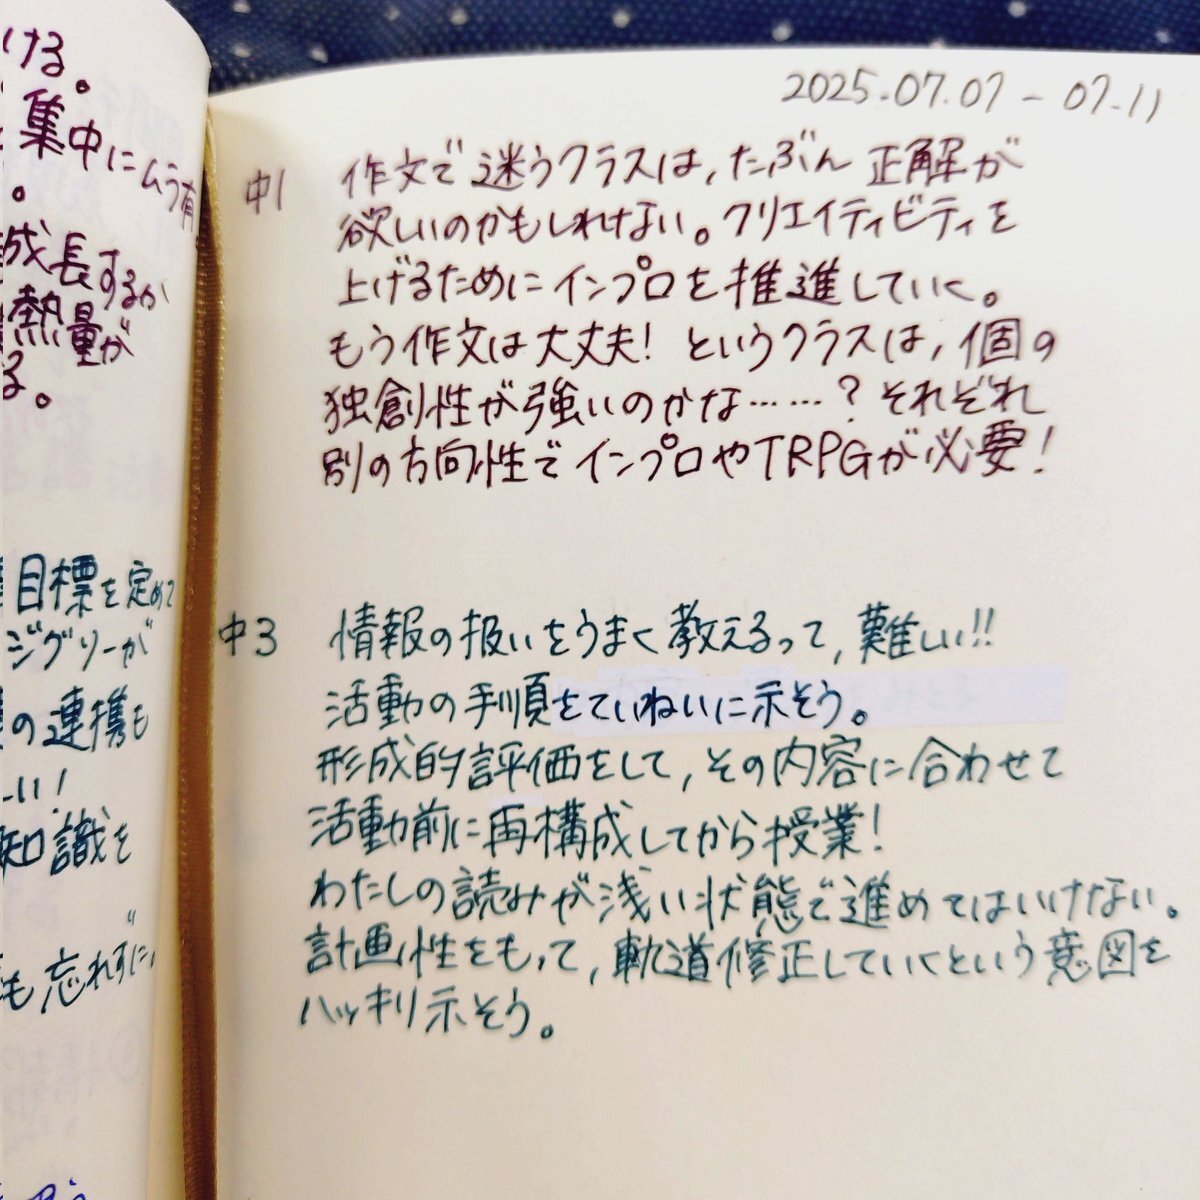 ける。
集中にムラ有
。
成長するか
熱量が
る。
目標を定めて
ジグソーが
の連携も
しい!
知識を
も忘れずに、
2025.07.07 - 07.11
中1
作文で迷うクラスは,たぶん正解が
欲しいのかもしれない。クリエイティビティを
上げるためにインプロを推進していく。
もう作文は大丈夫! というクラスは,個の
独創性が強いのかな……?それぞれ
別の方向性でインプロやTRPGが必要!
中3
情報の扱いをうまく教えるって,難しい!!
活動の手順をていねいに示そう。
形成的評価をして,その内容に合わせて
活動前に再構成してから授業!
わたしの読みが浅い状態で進めてはいけない。
計画性をもって,軌道修正していくという意図を
ハッキリ示そう。